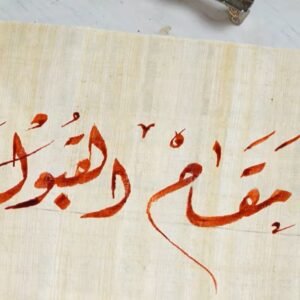 مَقَامْ القبُول